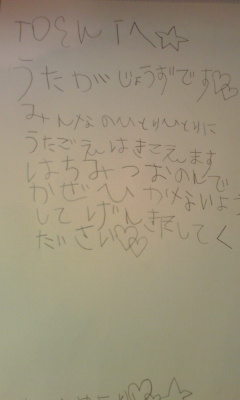 TOシんTへ☆
うたがじょうずです♡♡
みんなのひとりひとりに
うたごえんはきこえんます
はちみつおのんで
かぜひかないよう
してげんきだしてく
ださい♡♡